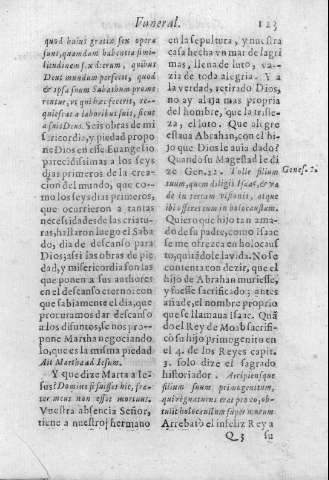 Funeral. 123
quod huius gratiæ sex opera
sunt, quamdam habentia simi-
litudinem sex dierum, quibus
Deus mundum perfecit, quod
& ipsa suum Sabathum prome
rentur, vt qui hæc fecerit, re-
quiescat a laboribus suis, sicut
a suis Deus. Seis obras de mi
sericordia, y piedad propo
ne Dios en este Euangelio
parecidissimas a los seys
dias primeros de la crea-
cion del mundo, que co-
mo los seys dias primeros,
que ocurrieron a tantas
necessidades de las criatu-
ras, hallaron luego el Saba-
do, dia de descanso para
Dios; assi las obras de pie,
dad, y misericordia son las
que ponen a sus authores
en el descanso eterno: con
que sabiamente el dia, que
procuramos dar descanso
a los difuntos, se nos pro-
pone Martha negociando
lo, que es la misma piedad
Ait Martha ad Iesum.
Y que dize Marta a Ie-
sus? Domine si fuisses hic, fra-
ter meus non esset mortuus.
Vuestra absencia Señor,
tiene a nuestro hermano
en la sepultura, y nuestra
casa hecha vn mar de lagri
mas, llena de luto, va-
zia de toda alegria. Y a
la verdad, retirado Dios,
no ay alaja mas propria
del hombre, que la triste-
za, el luto. Que aligre
estaua Abrahan, con el hi-
jo que Dios le auia dado?
Quando su Magestad le di
ze Gen. 22. Tolle filium
tuum, quem diligis Isaac, & va
de in terram visionis, atque
ibi offeres eum in holocaustum.
Quiero que hijo tan ama-
do de su padre, como Isaac
se me ofrezca en holocaus
to, quitãdole la vida. No se
contenta con dezir, que el
hijo de Abrahan muriesse,
y fuesse sacrificado; antes
añade, el nombre proprio
que se llamaua Isaac. Quã
do el Rey de Moab sacrifi-
cò su hijo primogenito en
el 4. de los Reyes capit.
3. solo dize el sagrado
historiador. Arripiensque
filium suum primogenitum,
qui regnaturus erat pro eo, ob-
tulit holocaustum super murum
Arrebatò el infeliz Rey a
Genes. 2.
Q 3 su